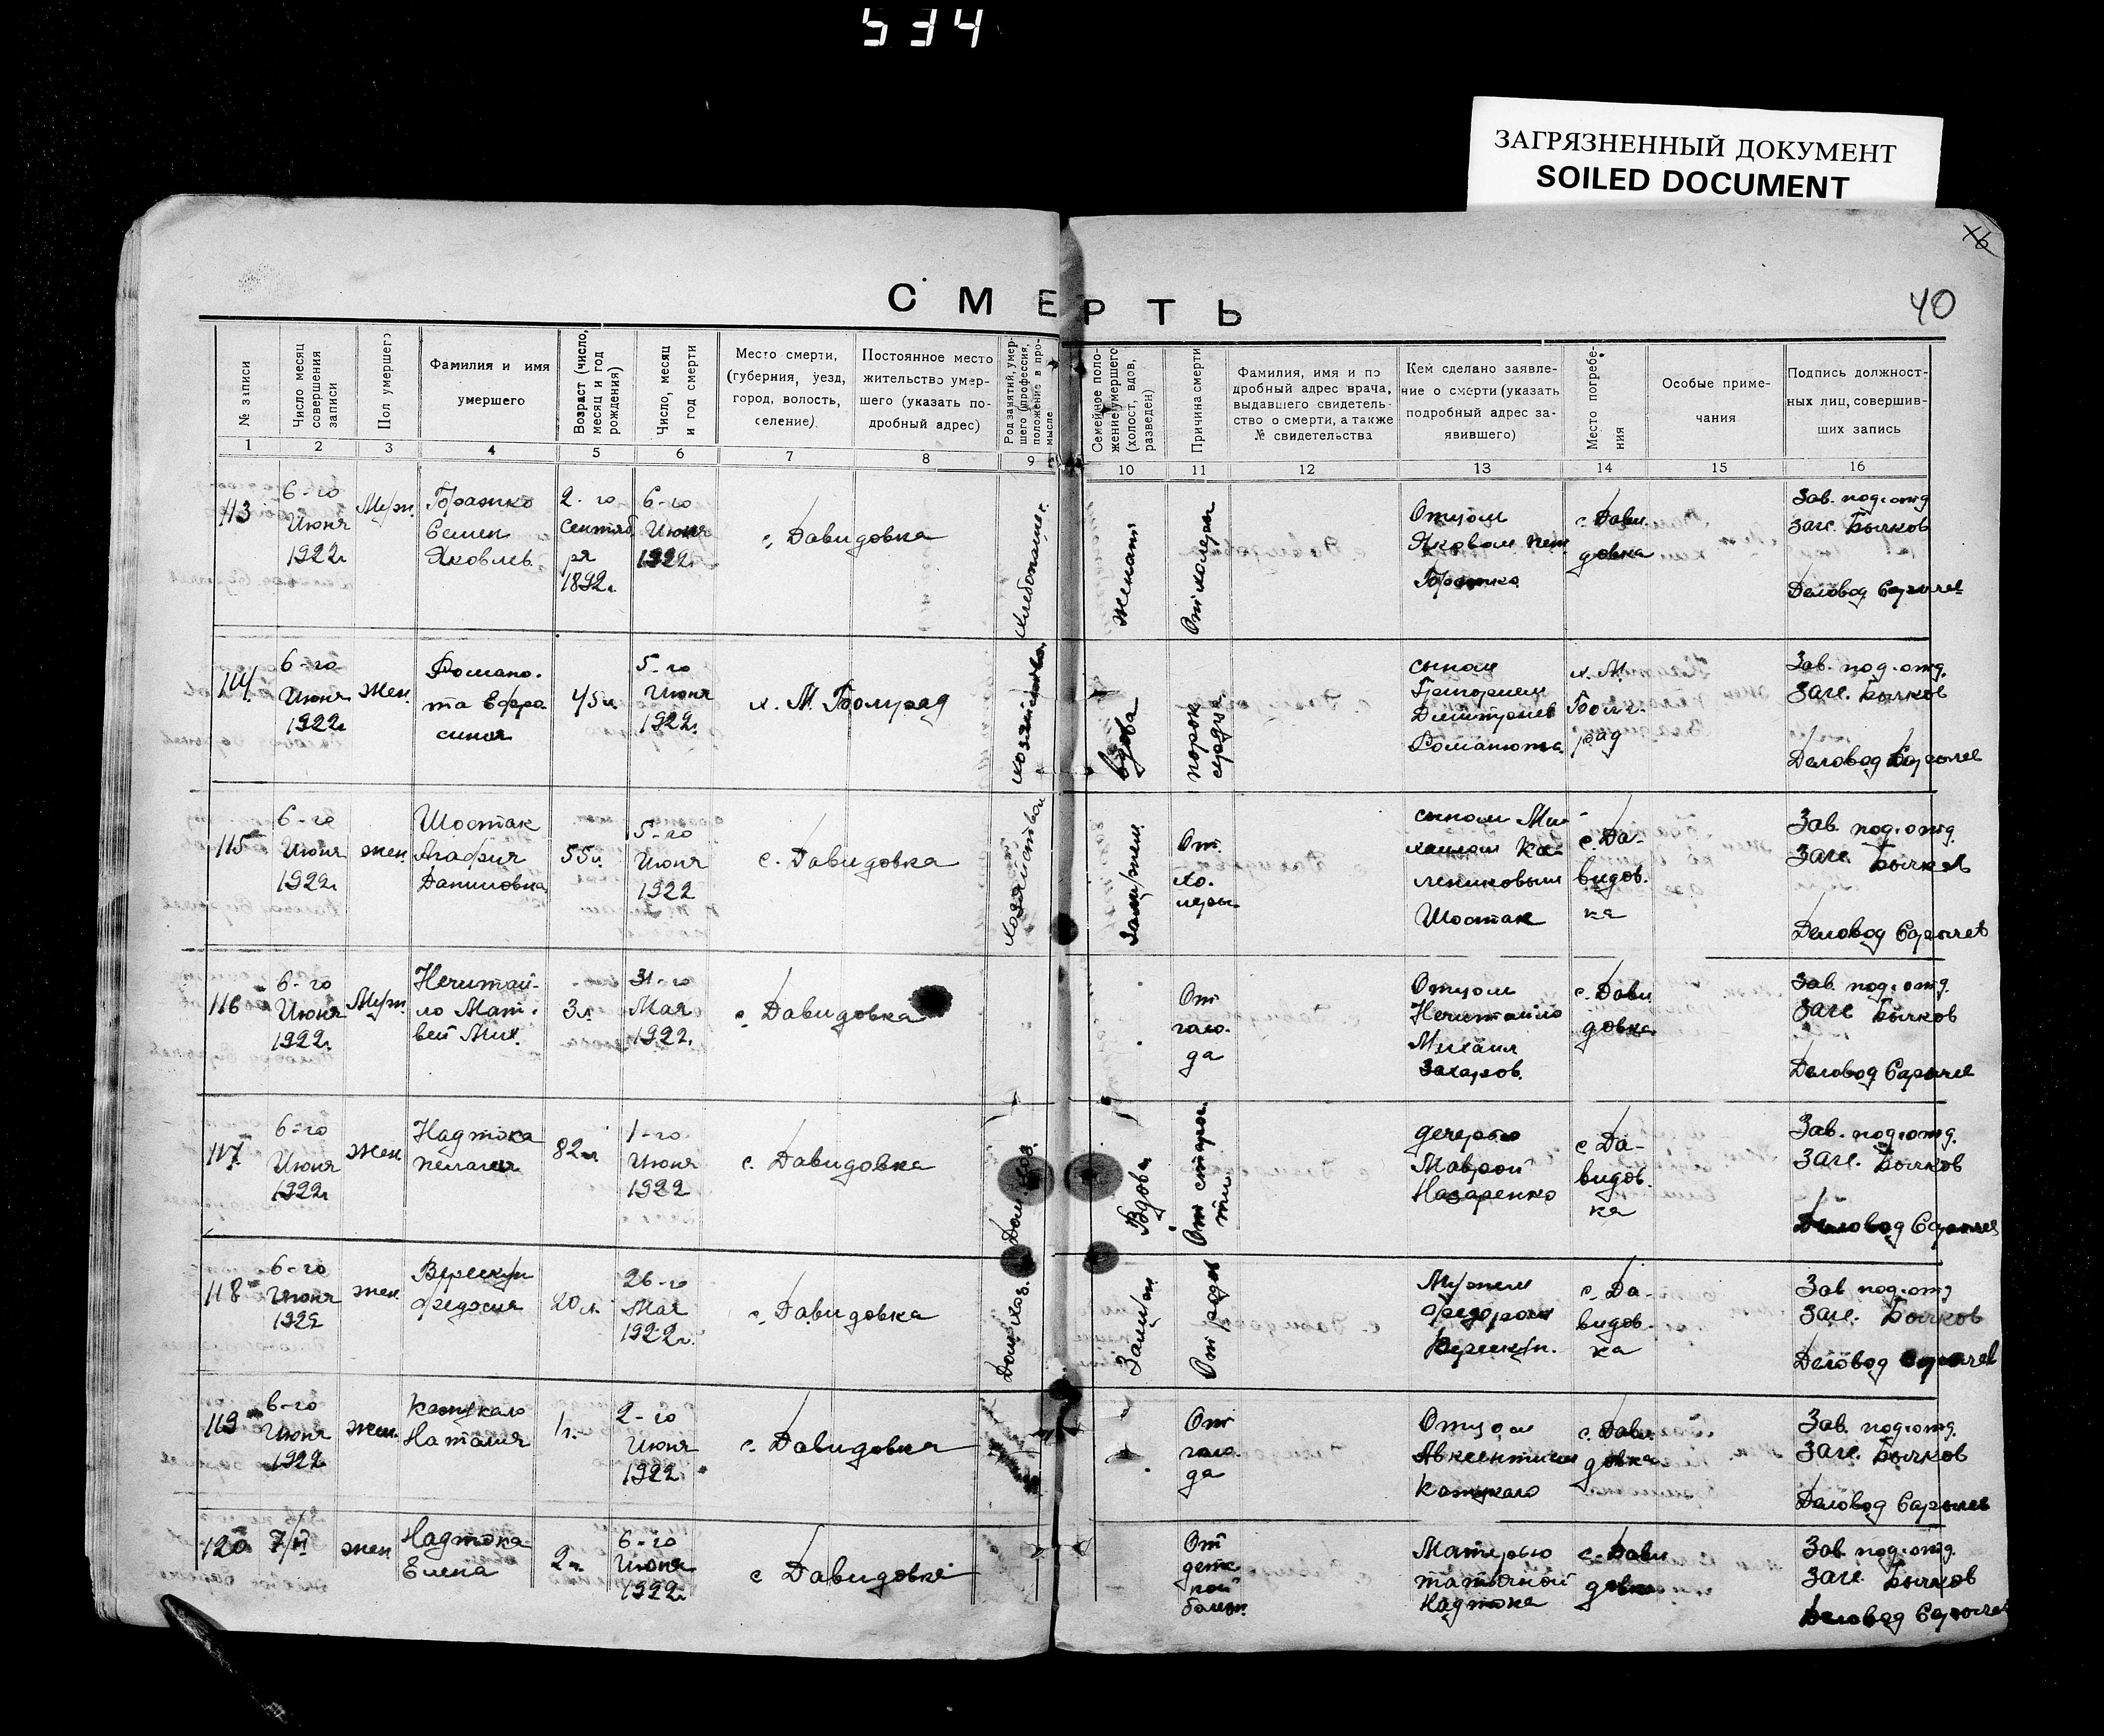 534
ЗАГРЯЗНЕННЫЙ ДОКУМЕНТ
SOILED DOCUMENT
40
СМЕРТЬ
№ записи
Число месяц совершения записи
Пол умершего
Фамилия и имя умершего
Возраст (число, месяц и год рождения)
Число, месяц и год смерти
Место смерти, (губерния, уезд, город, волость, селение).
Постоянное место жительство умершего (указать подробный адрес)
Род занятий, умершего (профессия, положение в промысле
Семейное положение умершего (холост, вдов, разведен)
Причина смерти
Фамилия, имя и подробный адрес врача, выдавшего свидетельство о смерти, а также № свидетельства
Кем сделано заявление о смерти (указать подробный адрес заявившего)
Место погребения
Особые примечания
Подпись должностных лиц, совершивших запись
1 2 3 4 5 6 7 8 9 10 11 12 13 14 15 16
113 6-го Июня 1922г Муж. Семен Яковлев. 2-го сентября 1892г. 6-го Июня 1922г. с. Давидовка Женат От холеры Отцом Яковом с. Давидовка Зав. под. отд. Загс. Бычков Деловод
114 6-го Июня 1922г. жен. 45л. 5-го Июня 1922г. х. М. вдова порок сердца сыном Григорием х. М. Зав. под. отд. Загс. Бычков Деловод
115 6-го Июня 1922г. жен Шостак Даниловна 55л. 5-го Июня 1922 с. Давидовка От холеры сыном Михаилом Шостак с. Давидовка Зав. под. отд. Загс. Бычков Деловод
116 6-го Июня 1922г. Муж. Нечитайло Матвей Мих. 3л. 31-го Мая 1922г. с. Давидовка От голода Отцом Нечитайло Михаил Захаров. с. Давидовка Зав. под. отд. Загс Бычков Деловод
117 6-го Июня 1922г жен Надтока Пелагея 82л 1-го Июня 1922 с. Давидовка Дом. хоз. Вдова От старости дочерью Маврой Назаренко с. Давидовка Зав. под. отд. Загс. Бычков Деловод
118 6-го Июня 1922 жен Федосия 20л. 26-го Мая 1922г. с. Давидовка Дом. хоз. От родов Мужем Федором с. Давидовка Зав. под. отд. Загс. Бычков Деловод
119 6-го Июня 1922 жен. Наталия 1г. 2-го Июня 1922 с. Давидовка От голода Отцом Авксентием с. Давидовка Зав. под. отд. Загс. Бычков Деловод
120 7/VI жен Надтока Елена 2г. 6-го Июня 1922г с. Давидовка От детской болезн. Матерью Татьяной Надтока с. Давидовка Зав. под. отд. Загс. Бычков Деловод